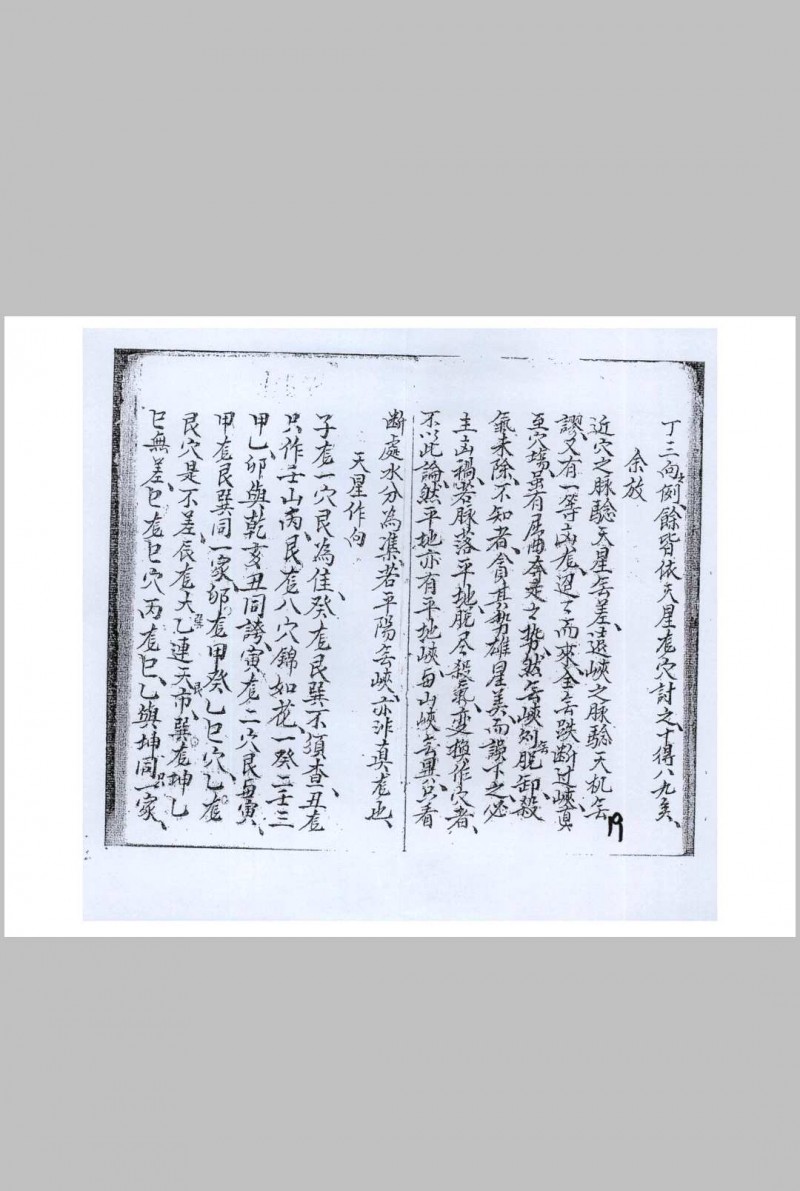 丁三向之例餘皆依天星龙穴討之十得八九矣
余放
近穴之脉騐天星无差遠峽之脉騐天机无
謬又有一等凶龙迢々而來全无跌断过峽直
至穴塲虽有屈曲奔走之势然无峽則无脱卸殺
氣未除不知者貪其势雄星美而誤下之必
主凶禍若脉落平地脱尽殺氣变換作穴者
不以此論然平地亦有平地峽与山峽无異只看
断處水分為準若平陽无峽亦非真龙也
天星作向
子龙一穴艮為佳癸龙艮巽不須查丑龙
只作壬山丙艮龙八穴錦如花一癸二壬三
甲乙卯與乾亥丑同誇寅龙二穴艮與寅
甲龙艮巽同一家卯龙甲癸乙巳穴乙龙
艮穴是不差辰龙大乙連天市巽龙坤乙
巳無差巳龙巳穴丙龙巳乙與坤同一家
19